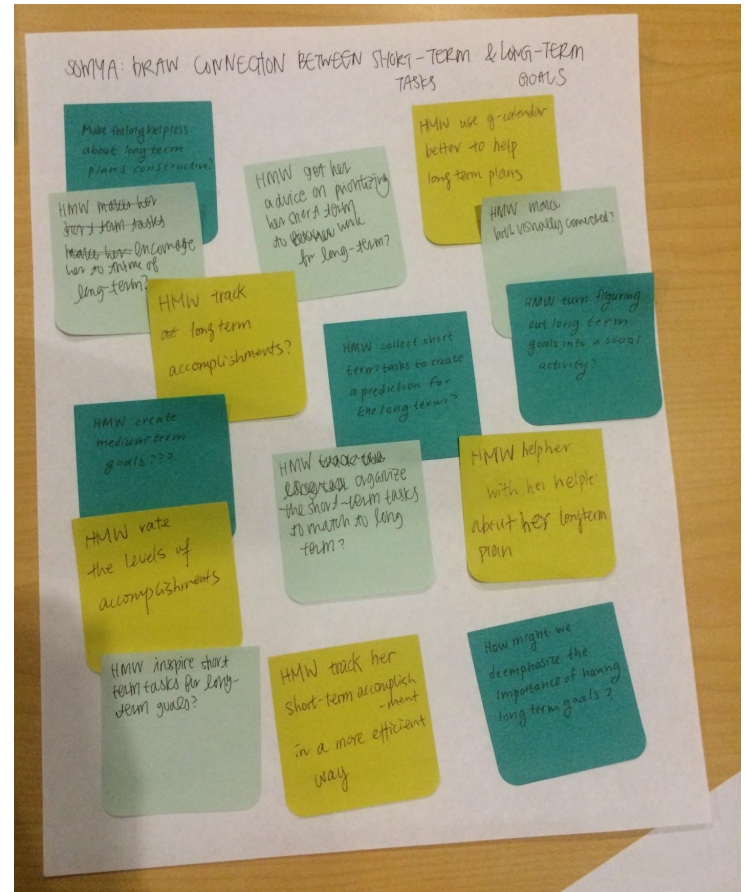 SOMYA: DRAW CONNECTION BETWEEN SHORT-TERM & LONG-TERM
TASKS GOALS
Make feeling helpless
about long term
plans constructive?
HMW use g-calendar
better to help
long term plans
HMW get her
advice on prioritizing
her short term
to work
for long-term?
HMW makes her
short term tasks
makes her encourage
her to think of
long-term?
HMW make
both visually connected?
HMW track
long term
accomplishments?
HMW collect short
term tasks to create
a prediction for
the long term?
HMW turn figuring
out long term
goals into a social
activity?
HMW create
medium-term
goals???
HMW
organize
the short-term tasks
to match to long
term?
HMW help her
with her helple
about her longterm
plan
HMW rate
the levels of
accomplishments
HMW inspire short
term tasks for long-
term goals?
HMW track her
short-term accomplish
-ment
in a more efficient
way
How might we
deemphasize the
importance of having
long term goals?